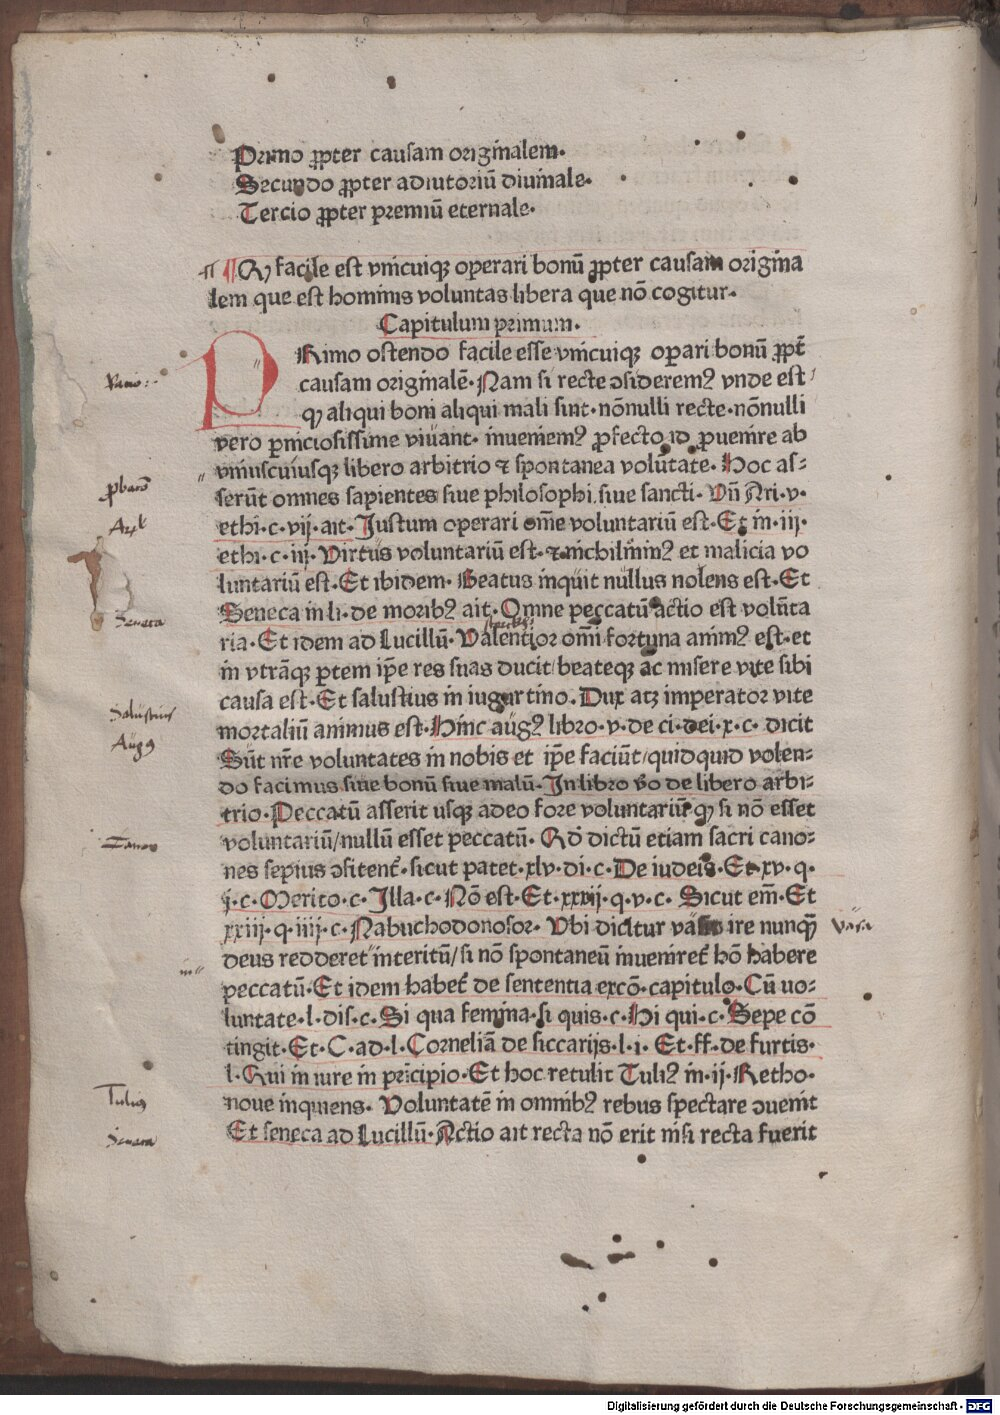 Primo ꝓpter causam originalem.
Secundo ꝓpter adiutoriū diuinale.
Tercio ꝓpter premiū eternale.
¶ Qꝫ facile est vnicuiqꝫ operari bonū ꝓpter causam origina
lem que est hominis voluntas libera que nō cogitur.
Capitulum primum.
PRimo ostendo facile esse vnicuiqꝫ oꝑari bonū ꝓpt̄
Primo:
causam originalē. Nam si recte ꝯsideremꝰ vnde est
qꝫ aliqui boni aliqui mali sint. nōnulli recte. nōnulli
vero ꝑniciosissime viuant. inueniemꝰ ꝓfecto id ꝓuenire ab
vniuscuiusqꝫ libero arbitrio ⁊ spontanea volūtate. Hoc as⸗
ꝓbatō
serūt omnes sapientes siue philosophi siue sancti. Vn̄ Ari. v.
ethi. c. vij. ait. Justum operari om̄e voluntariū est. Et in. iij.
ethi. c. iij. Virtus voluntariū est. ⁊ nichilminꝰ et malicia vo
luntariū est. Et ibidem. Beatus inquit nullus nolens est. Et
Seneca in li. de moribꝰ ait. Omne peccatū actio est volūta
Seneca
ria. Et idem ad Lucillū. Valentior om̄i fortuna animꝰ est. et
in vtrāqꝫ ꝑtem ip̄e res suas ducit/ beateqꝫ ac misere vite sibi
causa est. Et salustius in iugurtino. Dux atqꝫ imperator vite
Salustius
mortaliū animus est. Hinc augꝰ libro. v. de ci. dei. x. c. dicit
Augꝰ
Sūt nr̄e voluntates in nobis et ip̄e faciūt/ quidquid volen⸗
do facimus siue bonū siue malū. In libro v̄o de libero arbi⸗
trio. Peccatū asserit usqꝫ adeo fore voluntariū qꝫ si nō esset
voluntariū/ nullū esset peccatū. Qd̄ dictū etiam sacri cano⸗
nes sepius ꝯfitent᷑. sicut patet. xlv. di. c. De iudeis. Et. xv. q.
j. c. Merito. c. Illa. c. Nō est. Et. xxvij. q. v. c. Sicut em̄. Et
xxiij. q. iiij. c. Nabuchodonosor. Vbi dicitur vasa ire nunqꝫ̄
vasa
deus redderet interitū/ si nō spontaneū inueniret᷑ hō habere
in
peccatū. Et idem habet᷑ de sententia excō. capitulo. Cū uo⸗
luntate. l. dis. c. Si qua femina. si quis. c. Hi qui. c. Sepe cō
tingit. Et. C. ad. l. Corneliā de siccarijs. l. i. Et. ff. de furtis.
l. Qui in iure in prīcipio. Et hoc retulit Tuliꝰ in. ij. Retho.
noue inquiens. Voluntatē in omnibꝰ rebus spectare ꝯuenit
Tulius
Et seneca ad Lucillū. Actio ait recta nō erit nisi recta fuerit
Seneca
Digitalisierung gefördert durch die Deutsche Forschungsgemeinschaft - DFG